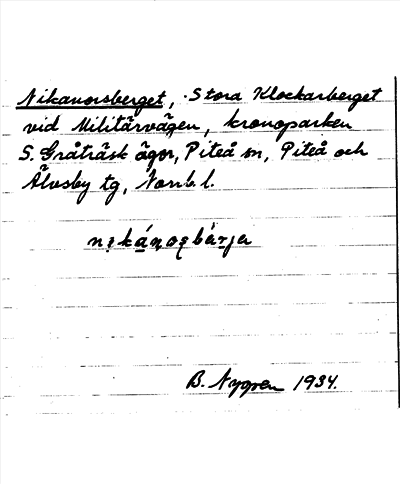 Nikanorsberget, Stora Klockarberget
vid Militärvägen, kronoparken
S. Gråträsk ägor, Piteå sn, Piteå och
Älvsby tg, Norrb. l.
B. Nygren 1934.